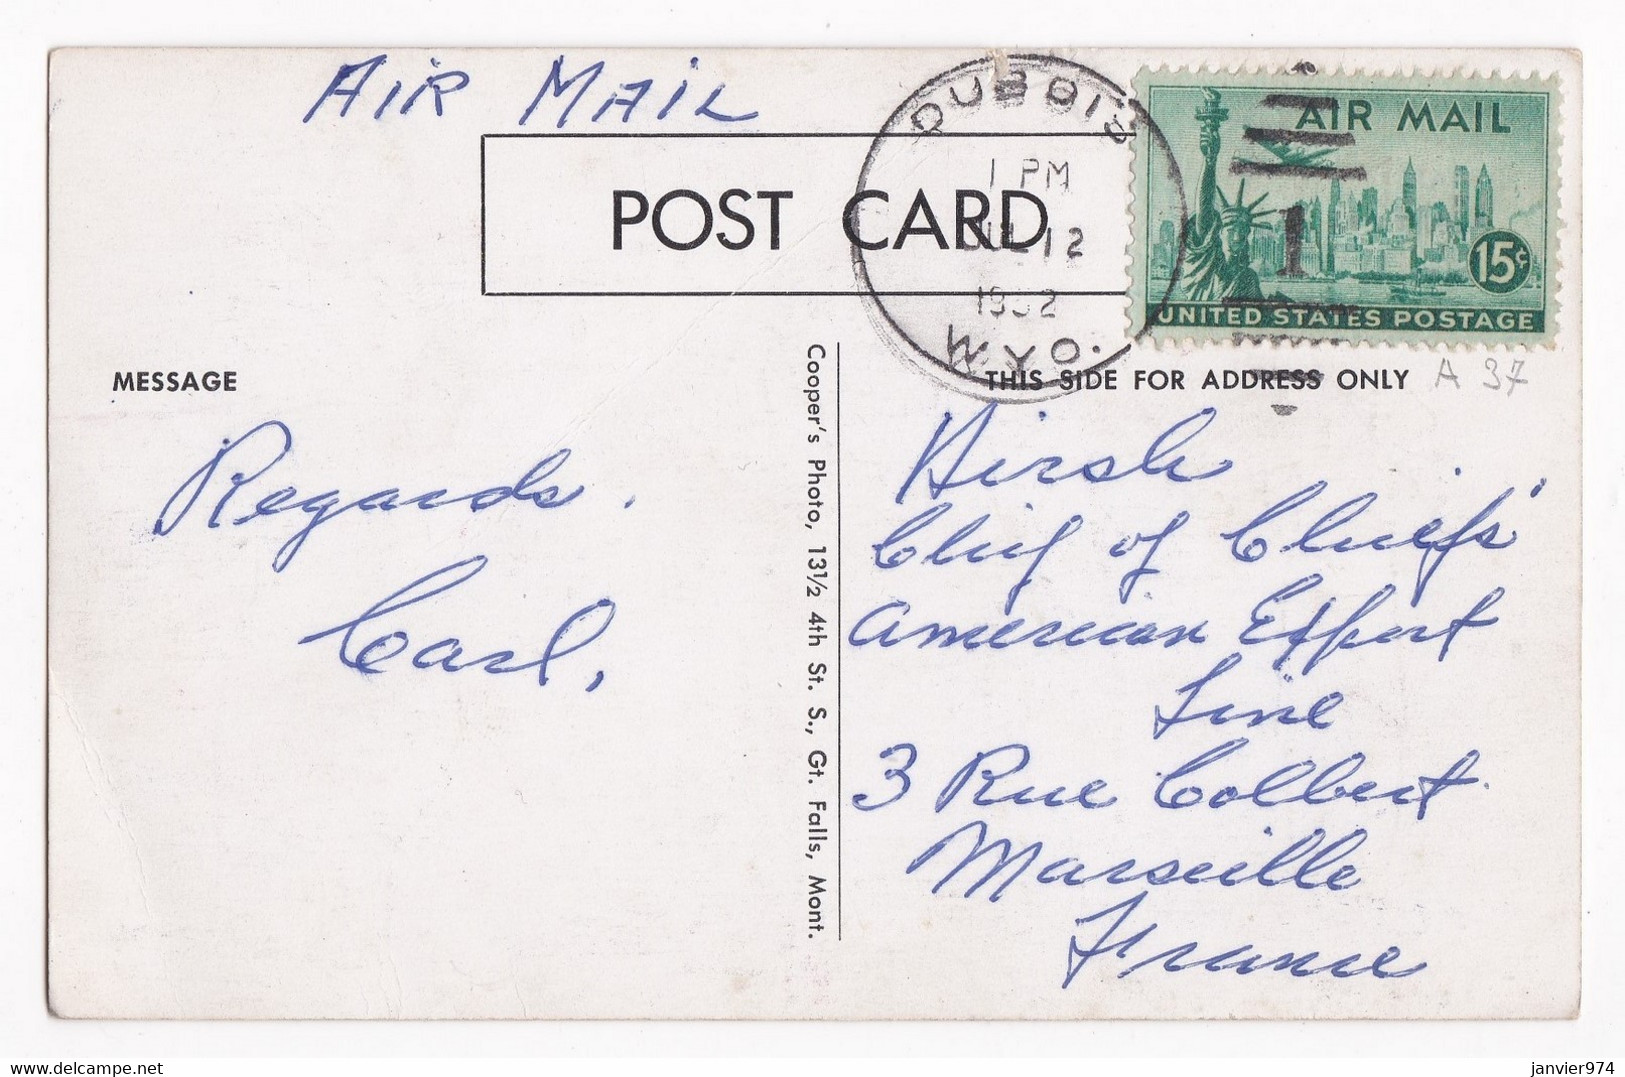 AIR MAIL
POST CARD
DUBOIS
1 PM
JUL 12
1952
WYO.
AIR MAIL
1
15¢
UNITED STATES POSTAGE
MESSAGE
THIS SIDE FOR ADDRESS ONLY
A 37
Regards.
Carl,
Cooper's Photo, 13½ 4th St. S., Gt. Falls, Mont.
Hirsh
Chief of Chiefs'
American Export
Line
3 Rue Colbert
Marseille
France
www.delcampe.net
janvier974